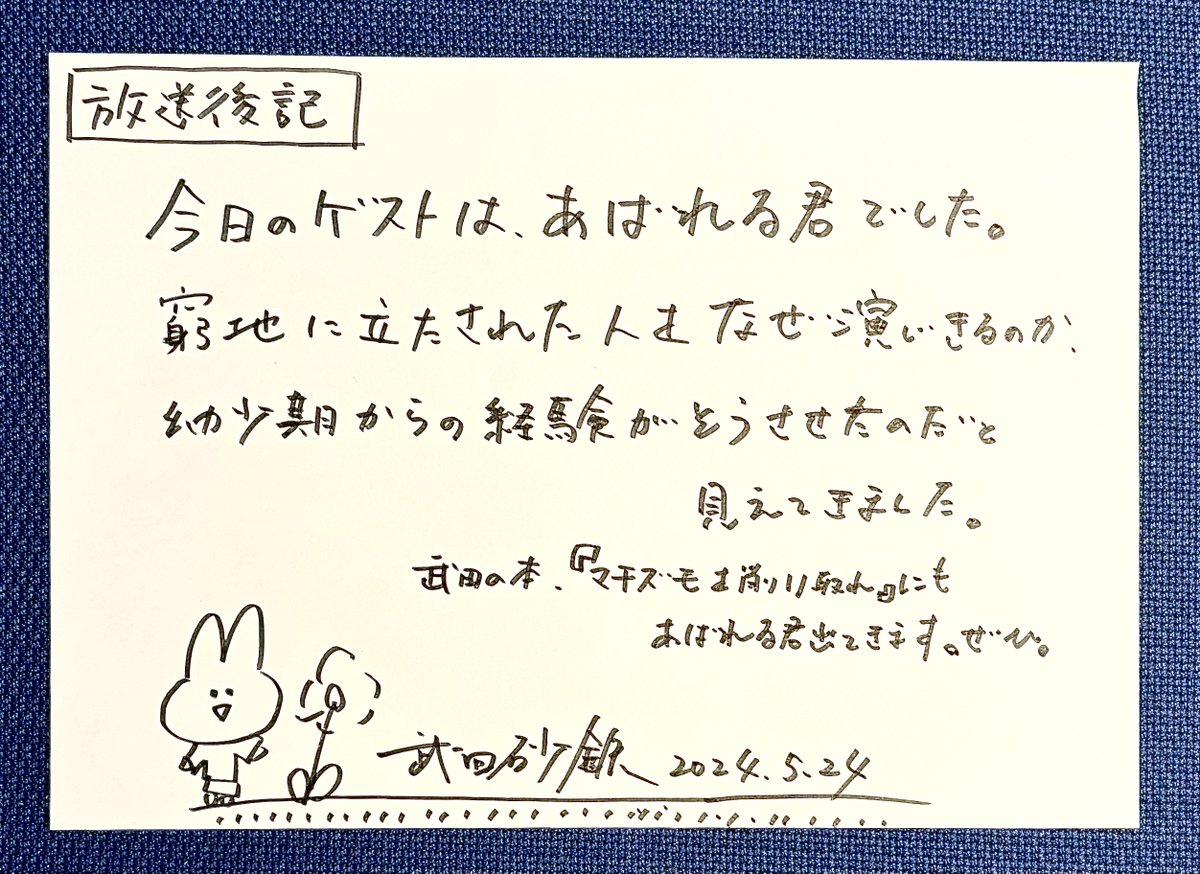 放送後記
今日のゲストは、あばれる君でした。
窮地に立たされた人をなぜ演じきるのか、
幼少期からの経験がそうさせたのだと
見えてきました。
武田の本、『マチズモを削り取れ』にも
あばれる君出てきます。ぜひ。
武田砂鉄 2024.5.24